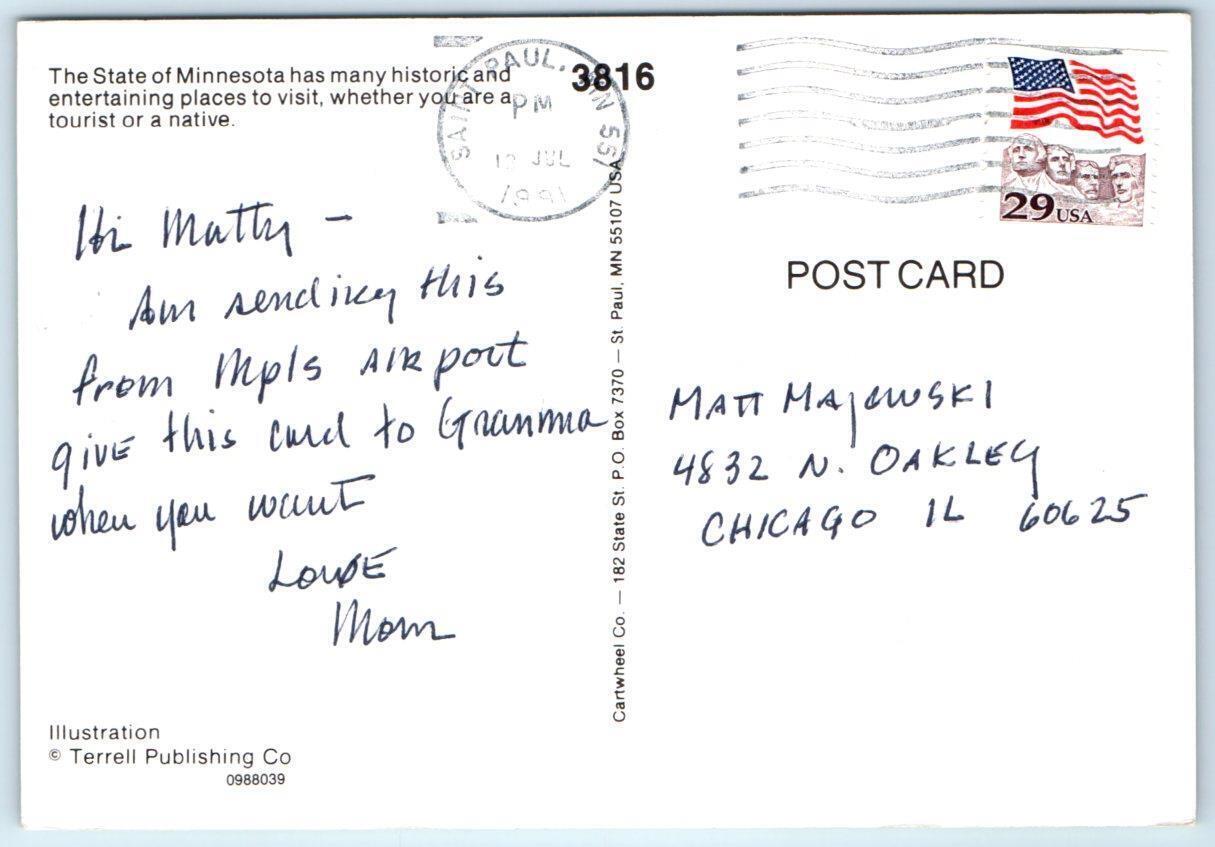 The State of Minnesota has many historic and
entertaining places to visit, whether you are a
tourist or a native.
3816
SAINT PAUL, MN 551
PM
JUL
1991
29 USA
POST CARD
Hi Matty –
Am sending this
from Mpls AIRport
give this card to Granma
when you want
Love
Mom
MATT MAJEWSKI
4832 N. OAKLEY
CHICAGO IL 60625
Cartwheel Co. — 182 State St. P.O. Box 7370 — St. Paul, MN 55107 USA
Illustration
© Terrell Publishing Co
0988039